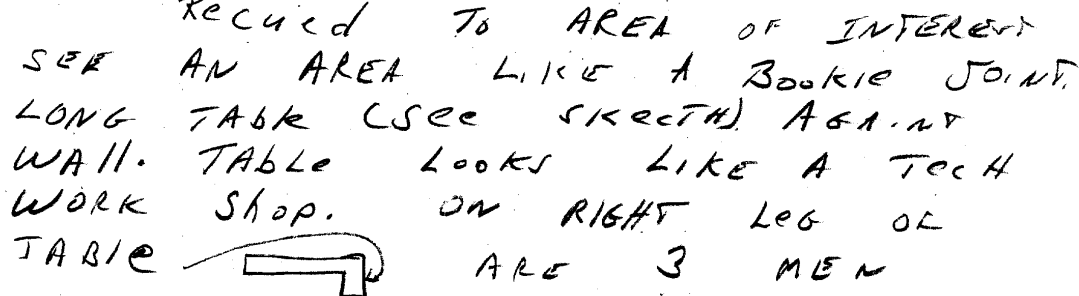 Recued TO AREA OF INTEREST
SEE AN AREA LIKE A Bookie JOINT.
LONG TABLE (See SKecTH) AGAINST
WAll. TABLE LOOKS LIKE A TecH
WORK Shop. ON RIGHT LeG OF
TABLE ARE 3 MEN